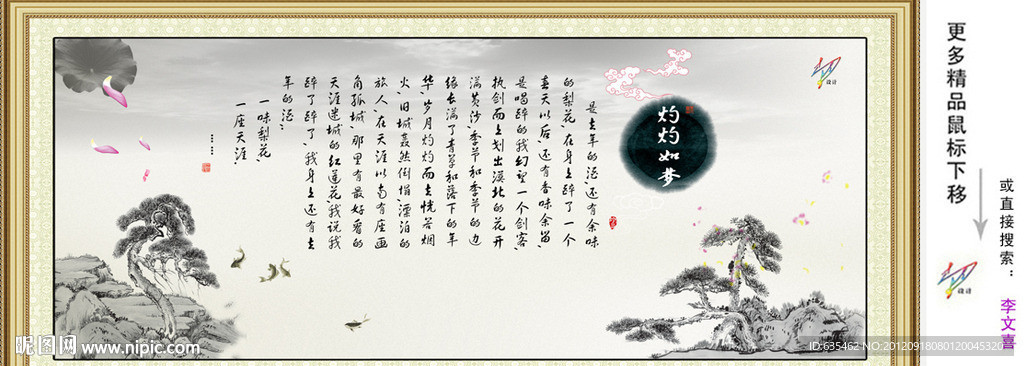 灼灼如梦
是去年的酒、还有余味
的梨花、在身上醉了一个
春天以后、还有香味余留
是喝醉的我幻望一个剑客、
执剑而上划出漠北的花开
满黄沙、季节和季节的边
缘长满了青草和落下的年
华、岁月灼灼而去恍若烟
火、旧城轰然倒塌、漂泊的
旅人、在天涯以南有座画
角孤城、那里有最好看的
天涯迷城的红莲花、我说我
醉了醉了、我身上还有去
年的酒…
一味梨花
一座天涯
……
设计
更多精品鼠标下移
或直接搜索：
李文喜
设计
昵图网 www.nipic.com
ID:635462 NO:20120918080120045320